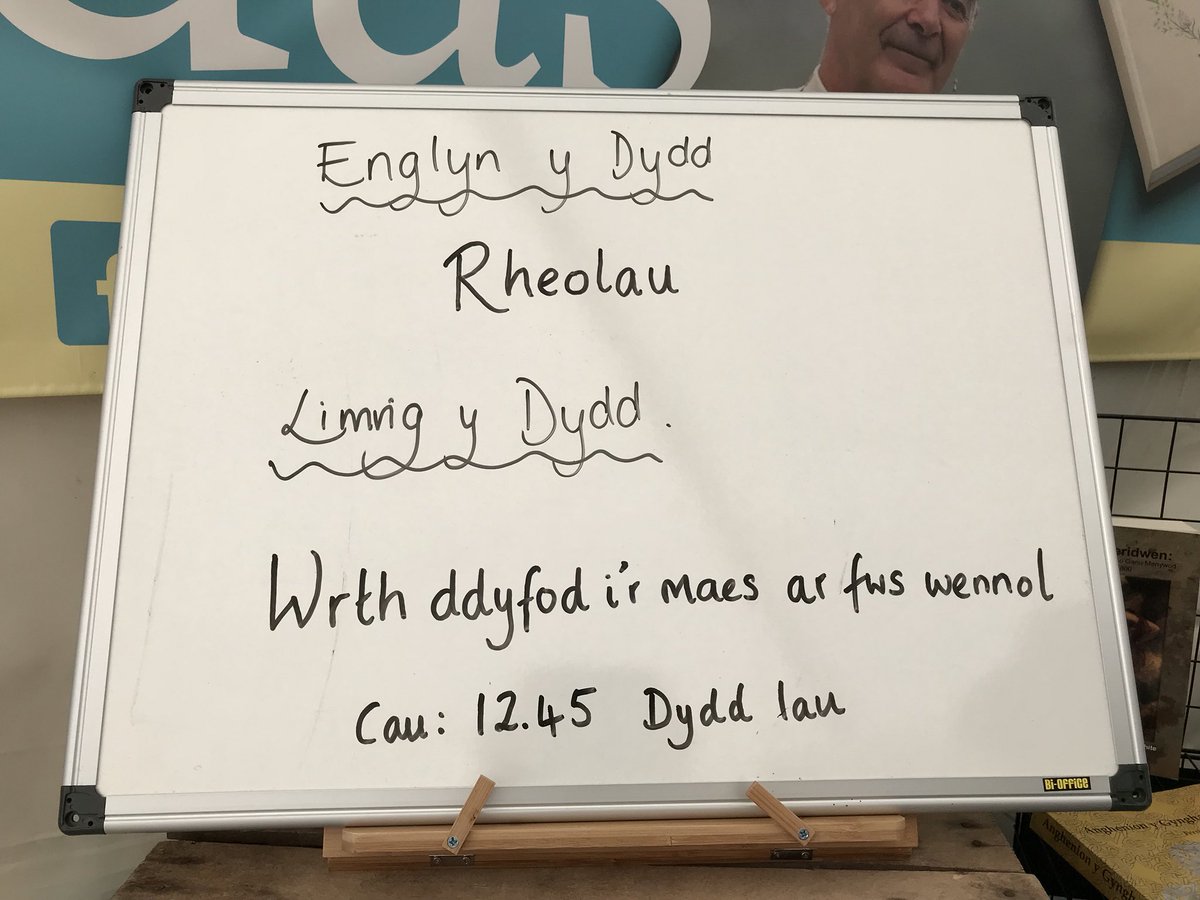 Englyn y Dydd
Rheolau
Limrig y Dydd.
Wrth ddyfod i'r maes ar fws wennol
Cau: 12.45 Dydd Iau
Bi-OFFiCE
ridwen:
Anghenion y Gyngh